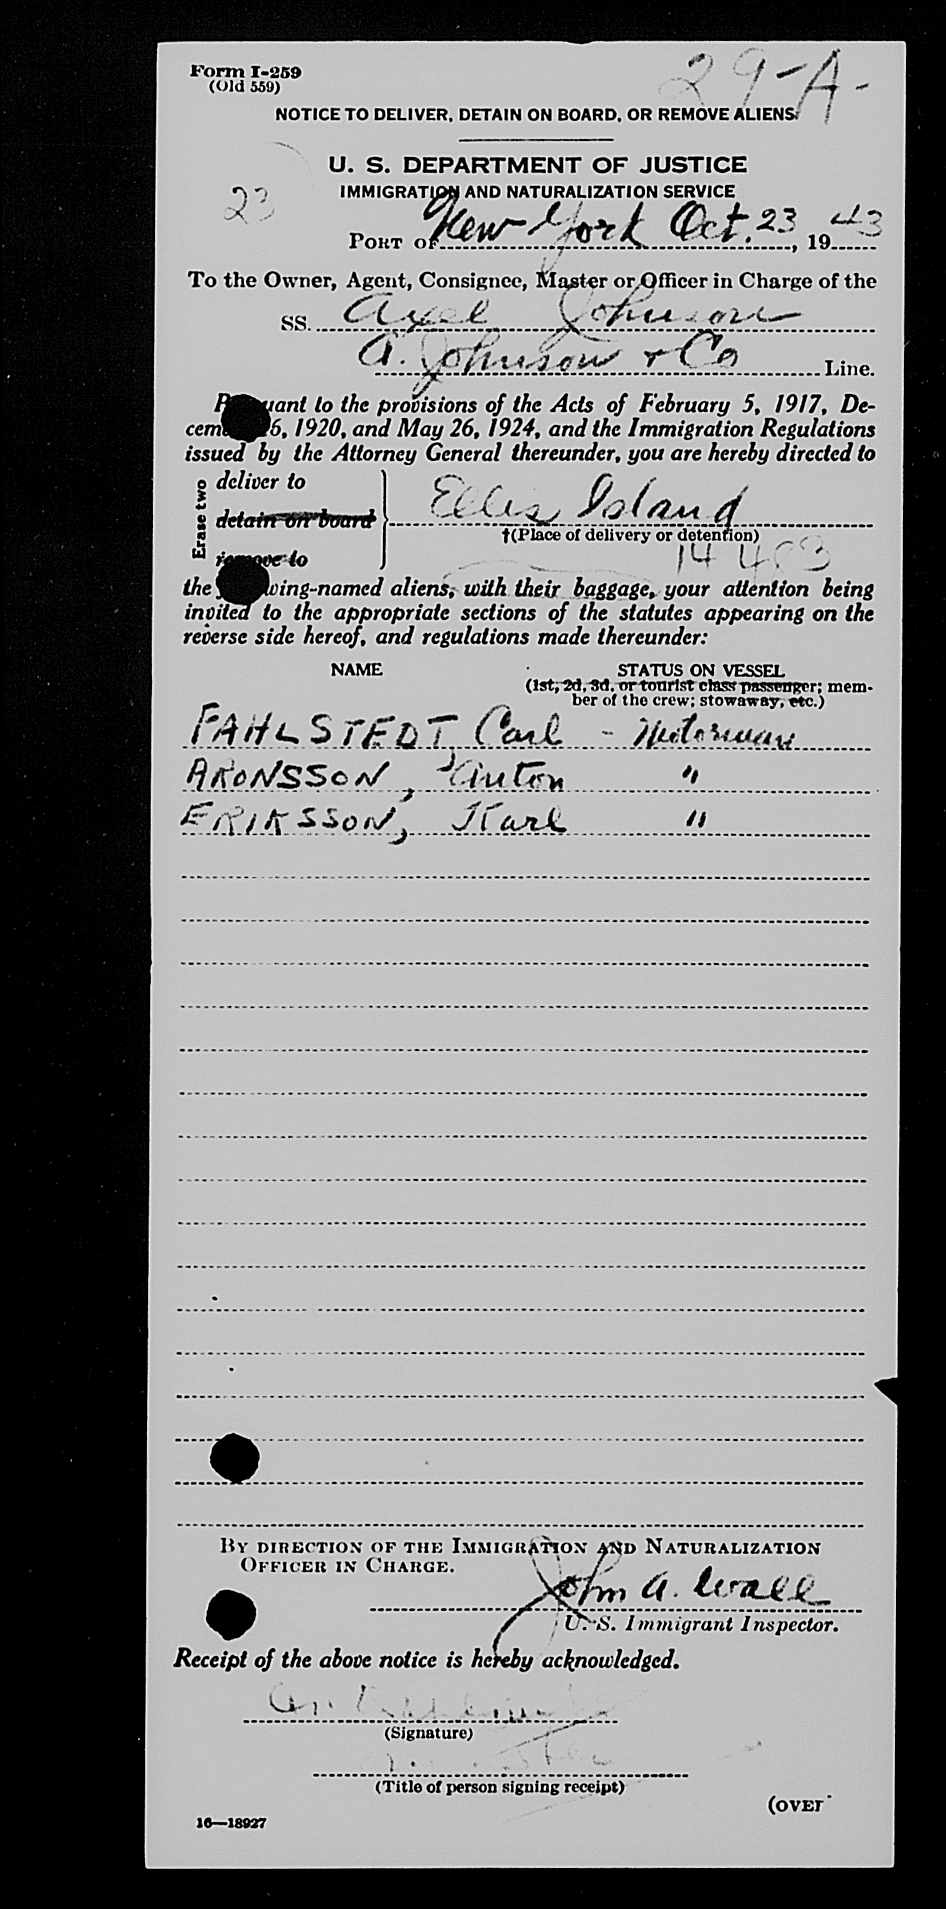 Form I-259
(Old 559)
29-A-
NOTICE TO DELIVER, DETAIN ON BOARD, OR REMOVE ALIENS
U. S. DEPARTMENT OF JUSTICE
23
IMMIGRATION AND NATURALIZATION SERVICE
PORT OF New York Oct. 23, 1943
To the Owner, Agent, Consignee, Master or Officer in Charge of the
SS. Axel Johnson
A. Johnson + Co Line.
Pursuant to the provisions of the Acts of February 5, 1917, De-
cem 6, 1920, and May 26, 1924, and the Immigration Regulations
issued by the Attorney General thereunder, you are hereby directed to
Erase two
deliver to
detain on board
remove to
Ellis Island
†(Place of delivery or detention)
14 483
the wing-named aliens, with their baggage, your attention being
invited to the appropriate sections of the statutes appearing on the
reverse side hereof, and regulations made thereunder:
NAME STATUS ON VESSEL
(1st, 2d, 3d, or tourist class passenger; mem-
ber of the crew; stowaway, etc.)
FAHLSTEDT, Carl - Motorman
ARONSSON, Anton "
ERIKSSON, Karl "
BY DIRECTION OF THE IMMIGRATION AND NATURALIZATION
OFFICER IN CHARGE.
John A. Wall
U. S. Immigrant Inspector.
Receipt of the above notice is hereby acknowledged.
(Signature)
(Title of person signing receipt)
(OVER
16—18927